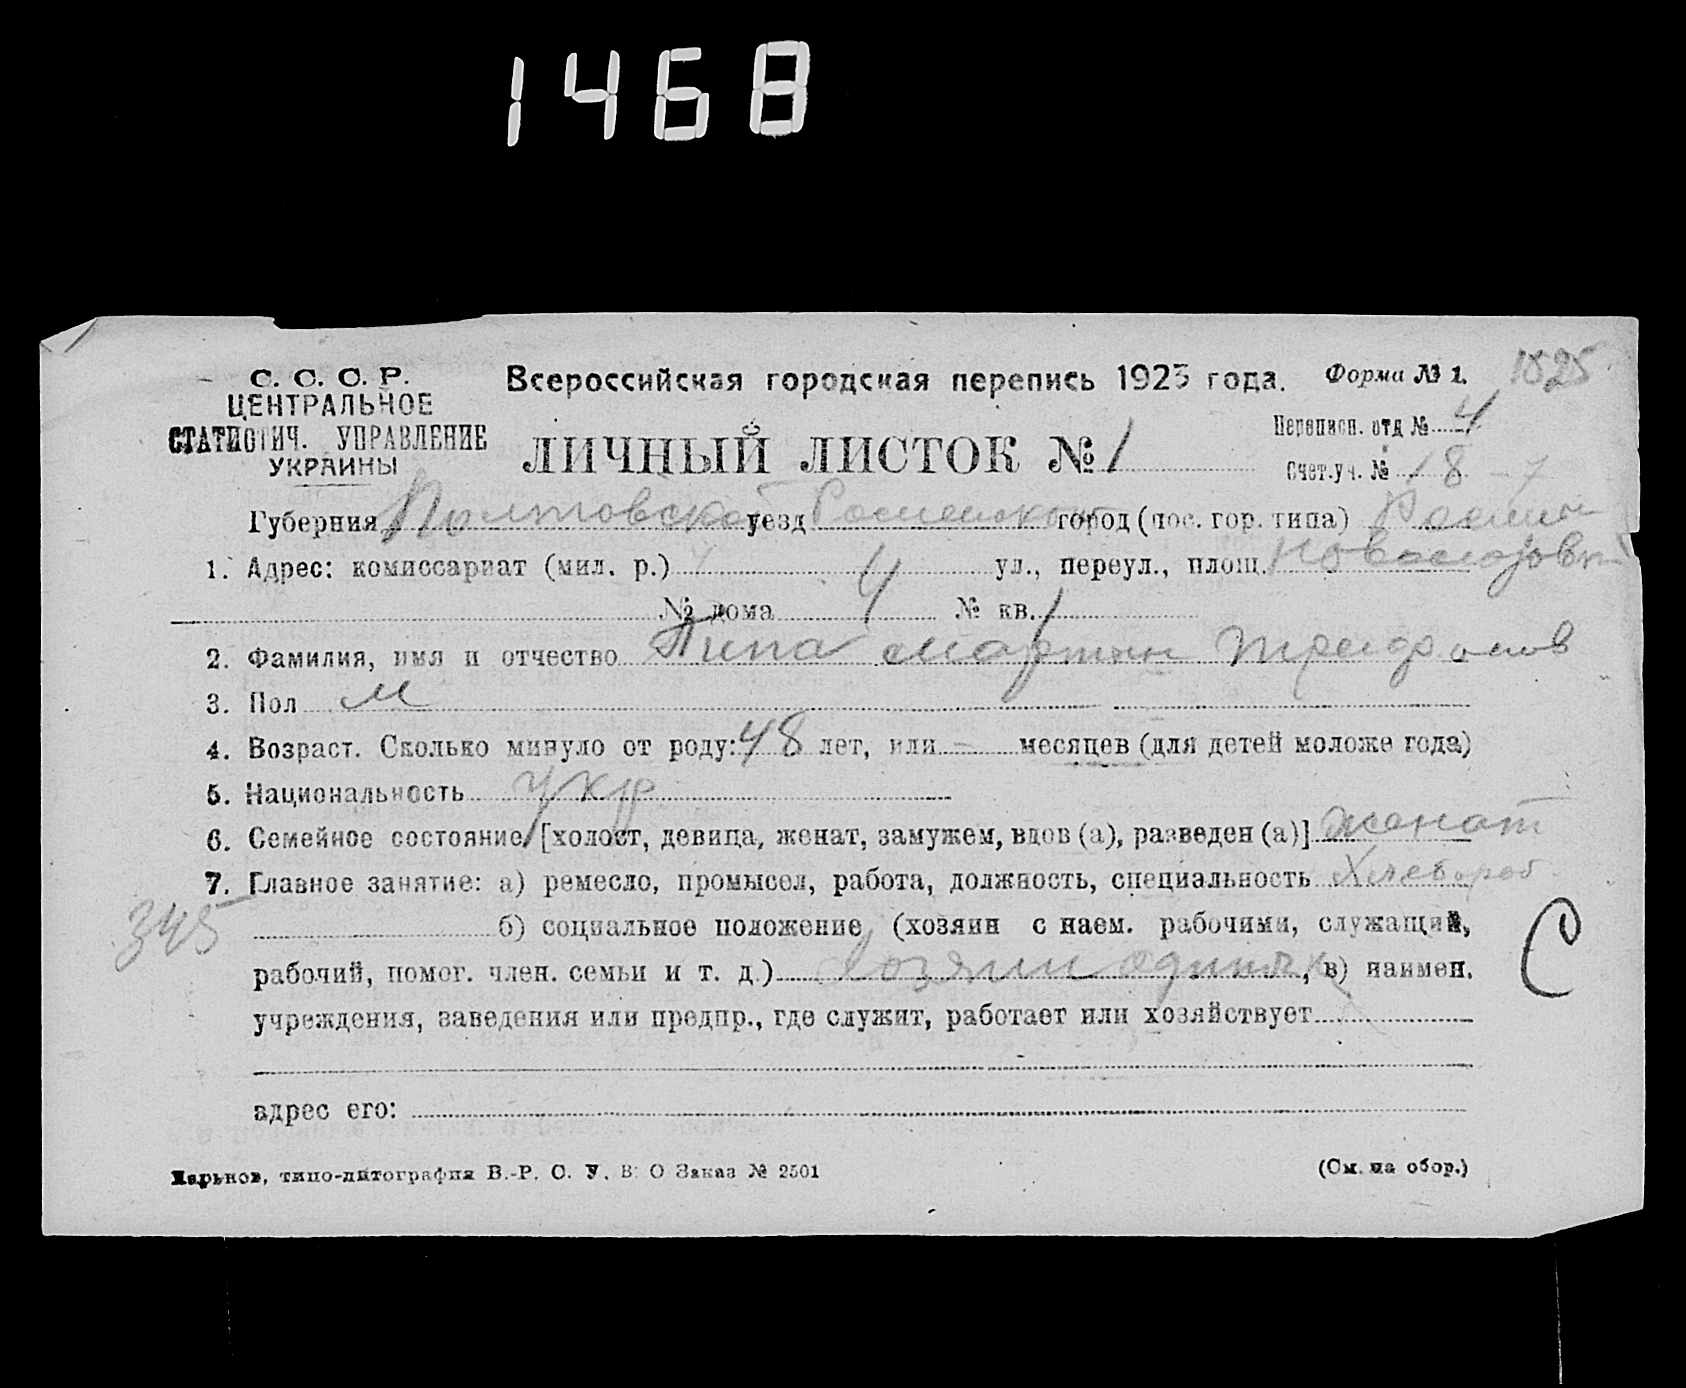 1468
С. С. С. Р.
ЦЕНТРАЛЬНОЕ
СТАТИСТИЧ. УПРАВЛЕНИЕ
УКРАИНЫ
Всероссийская городская перепись 1923 года.
Форма № 1.
1525
ЛИЧНЫЙ ЛИСТОК № 1
Переписн. отд № 4
Счет.уч. № 18 - 7
Губерния Полтовской уезд Роменский город (пос. гор. типа) Ромны
1. Адрес: комиссариат (мил. р.) 4 ул., переул., площ.
№ дома 4 № кв. 1
2. Фамилия, имя и отчество Пипа Мартин Трифонов
3. Пол м
4. Возраст. Сколько минуло от роду: 48 лет, или - месяцев (для детей моложе года)
5. Национальность укр
6. Семейное состояние [холост, девица, женат, замужем, вдов (а), разведен (а)] женат
7. Главное занятие: а) ремесло, промысел, работа, должность, специальность Хлебороб
345
б) социальное положение (хозяин с наем. рабочими, служащий,
рабочий, помог. член. семьи и т. д.) хозяин одиночк, в) наимен.
С
учреждения, заведения или предпр., где служит, работает или хозяйствует
адрес его:
Харьков, типо-литография В.-Р. С. У. В. О Заказ № 2501
(См. на обор.)